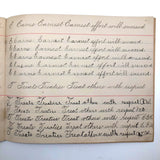 Earn Earnest Earnest effort will succeed
Earn Earnest Earnest effort will succeed
Earn Earnest Earnest effort will succeed
Earn Earnest Earnest effort will succeed
Earn Earnest Earnest effort will succeed
Earn Earnest Earnest effort will succeed
Treats Treaties Treat others with respect
Treats Treaties Treat others with respect
Treats Treaties Treat others with respect
Treats Treaties Treat others with respect
Treats Treaties Treat others with respect
Treats Treaties Treat others with respect